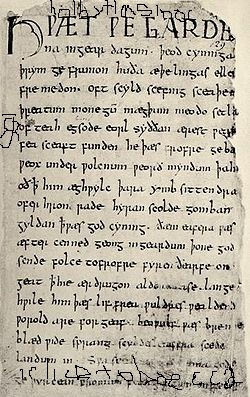 HǷÆT ǷE GARDE
na ingear dagum. þeod cyninga
þrym ge frunon huða æþelingas elle
fre medon. oft scyld scefing sceaþe
þreatum monegū mægþum meodo setla
of teah egsode eorl syððan ærest ƿear
fea sceaft funden he þæs frofre geba
ƿeox under ƿolcnum ƿeorð myndum þah
oð ꝥ him æghƿylc þara ymb sittendra
ofer hron rade hyran scolde gomban
gyldan ꝥ ƿæs god cyning. ðæm eafera ƿæs
æfter cenned geong ingeardum þone god
sende folce tofrofre fyren ðearfe on
geat ꝥ hie ær drugon aldor ase. lange
hƿile him þæs liffrea ƿuldres ƿealdend
ƿorold are for geaf. beoƿulf ƿæs breme
blæd ƿide sprang scyldes eafera scede
landum in